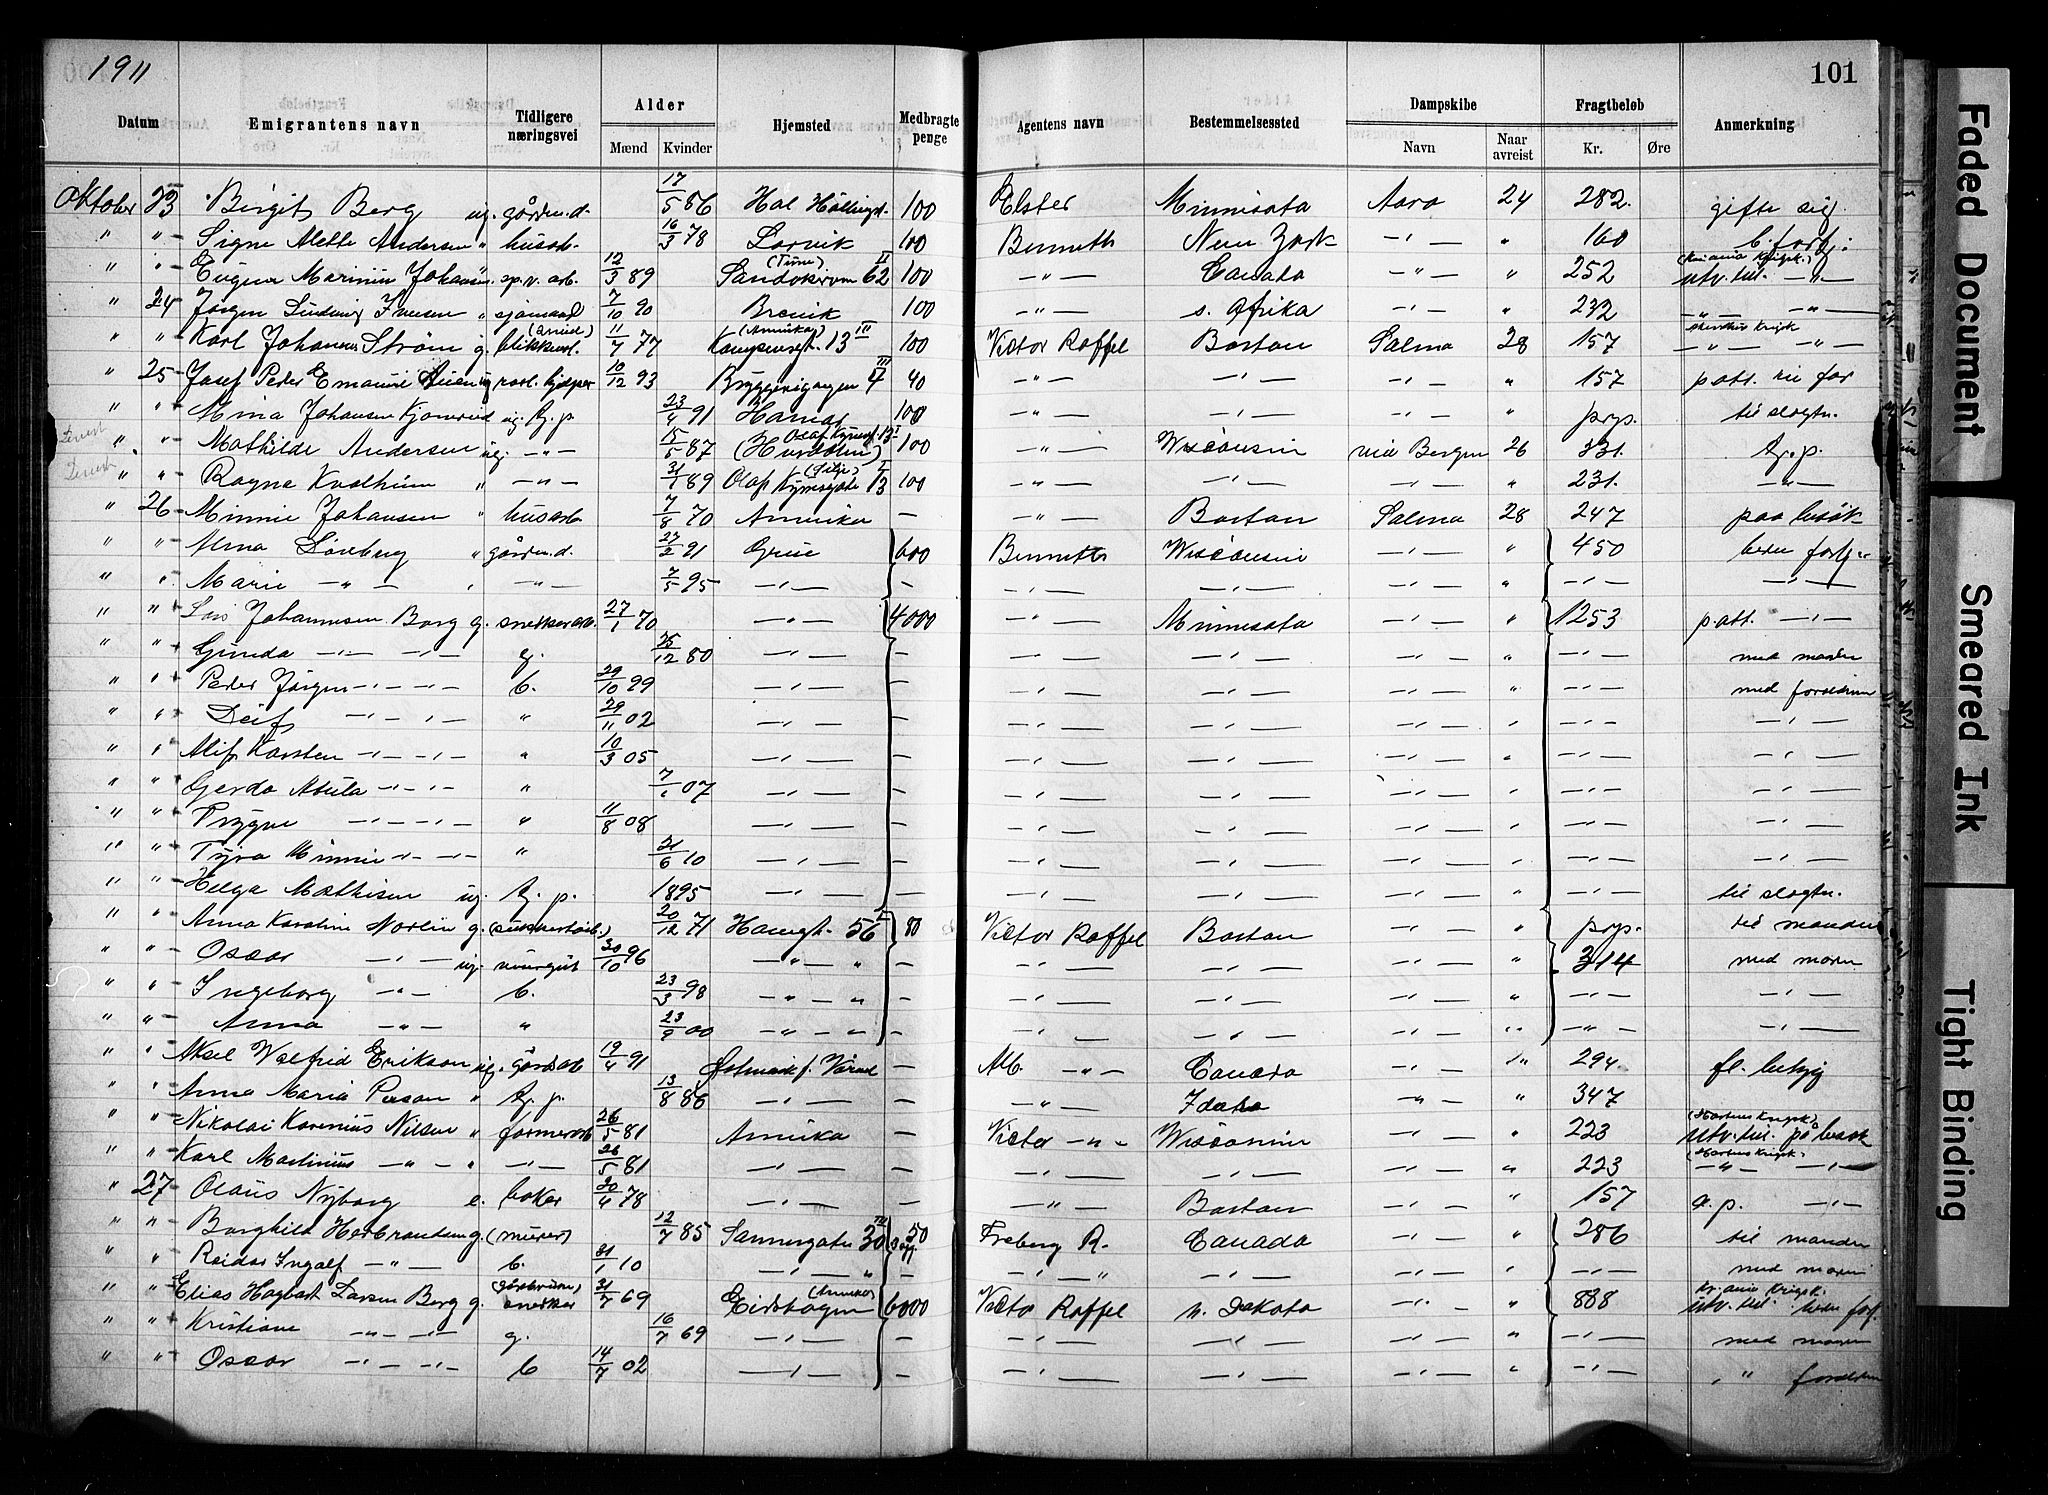 1911
101
Datum Emigrantens navn Tidligere næringsvei Alder Mænd Kvinder Hjemsted Medbragte penge Agentens navn Bestemmelsessted Dampskibe Navn Naar avreist Fragtbeløb Kr. Øre Anmerkning
Oktober 23 Birgit Berg ug. gårdm.d. 17/5 86 Hol Hallingd. 100 Elster Minnisota Aaro 24 282. gifte sig
" " Signe Mette Andersen " husarb. 16/3 78 Larvik 100 Bennetts New York -"- " 160 b. forbj.
" " Eugen Marinius Johansen sp.v. arb. 12/3 89 (Tune) Sandakerven 62 II 100 -"- Canada -"- " 252 (Kr.ania Krigsk.) utv.til. -"-
" 24 Jørgen Ludvig Iversen " sjömand 7/10 90 Brevik 100 -"- s. Afrika -"- " 232 -"- -"-
" " Karl Johannes Strøm g. blikkensl. 11/7 77 (Amerika) Kampensgt. 13 III 100 Victor Roffel Boston Salmo 28 157 -"- -"-
" 25 Josef Peder Emanuel ug. rørl. hjelper 10/12 93 Bryggerigangen 4 III 40 -"- -"- -"- " 157 patt.
" " Mina Johansen Kjomrud ug. tj.p. 23/4 91 Hamar 100 -"- -"- -"- " prp. til slegtn.
" " Mathilde Andersen ug. -"- 15/5 87 (Hurdalen) 100 -"- Wisconsin via Bergen 26 331. tj.p.
" " Ragna Kvalheim " -"- 31/1 89 Olaf Kyrresgate 13 I 100 -"- -"- -"- " 231. -"-
" 26 Minnie Johansen " husarb 7/8 70 Amerika - -"- Boston Salmo 28 247 paa besök
" " Alma Löneberg " gårdm.d. 27/2 91 Grue 600 Bennetts Wisconsin -"- " 450 bedre forhj.
" " Marie -"- " -"- 7/5 95 -"- - -"- -"- -"- " -"- -"-
" " Lars Johannesen Borg g. snekkerarb. 27/1 70 -"- 4000 -"- Minnesota -"- " 1253 patt. -"-
" " Gunda -"- -"- g. 25/12 80 -"- - -"- -"- -"- " -"- med manden
" " Peder Jørgen -"- -"- b. 29/10 99 -"- - -"- -"- -"- " -"- med foreldrene
" " Leif -"- -"- " 29/11 02 -"- - -"- -"- -"- " -"- -"-
" " Alif Karsten -"- -"- " 10/3 05 -"- - -"- -"- -"- " -"- -"-
" " Gerda Abula -"- -"- " 7/1 07 -"- - -"- -"- -"- " -"- -"-
" " Trygve -"- -"- " 11/8 08 -"- - -"- -"- -"- " -"- -"-
" " Tyra Minnie -"- -"- " 21/6 10 -"- - -"- -"- -"- " -"- -"-
" " Helga Mathisen ug. tj.p. 1895 -"- - -"- -"- -"- " -"- til slegtn.
" " Anna Karoline Norlin g. 20/12 71 Hausgt. 56 I 80 Victor Roffel Boston -"- " prp. til manden
" " Oscar -"- ug. visergut 30/10 96 -"- " - -"- -"- -"- " 314 med moren
" " Ingeborg -"- b. 23/3 98 -"- " - -"- -"- -"- " -"- -"-
" " Anna -"- " 23/9 00 -"- " - -"- -"- -"- " -"- -"-
" " Aksel Walfrid Erikson ug. gårdsarb 19/4 91 Østmark f. Värml - Alb. -"- Canada -"- " 294. fl. bebyg
" " Anna Maria Person " tj.p. 13/8 86 -"- - -"- Idaho -"- " 347 -"-
" " Nikolai Karenius Nilsen " farmerarb 26/5 81 Amerika - Victor -"- Wisconsin -"- " 223 (Horten Krigsk.) utv.til. på besøk
" " Karl Martinius -"- " -"- 26/5 81 -"- - -"- -"- -"- " 223 (Horten Krigsk.) -"- -"-
" 27 Olaus Nyborg e. baker 20/4 78 -"- - -"- Boston -"- " 157 a.p. -"-
" " Borghild Herbrandsen g. (murer) 12/7 85 Sannergaten 30 III 50 Freberg R. Canada -"- " 286 til manden
" " Reidar Ingolf -"- b. 31/1 10 -"- " - -"- -"- -"- " -"- med moren
" " Elias Hagbart Larsen Berg g. snekker 31/7 69 (Amerika) Eidskogen 6000 Victor Roffel n. Dakota -"- " 888 Kr.ania Krigsk. utv.til. bedre forh.
" " Kristiane -"- -"- g. 16/7 69 -"- - -"- -"- -"- " -"- med manden
" " Oscar -"- -"- b 14/7 02 -"- - -"- -"- -"- " -"- " foreldrene
Faded Document
Smeared Ink
Tight Binding